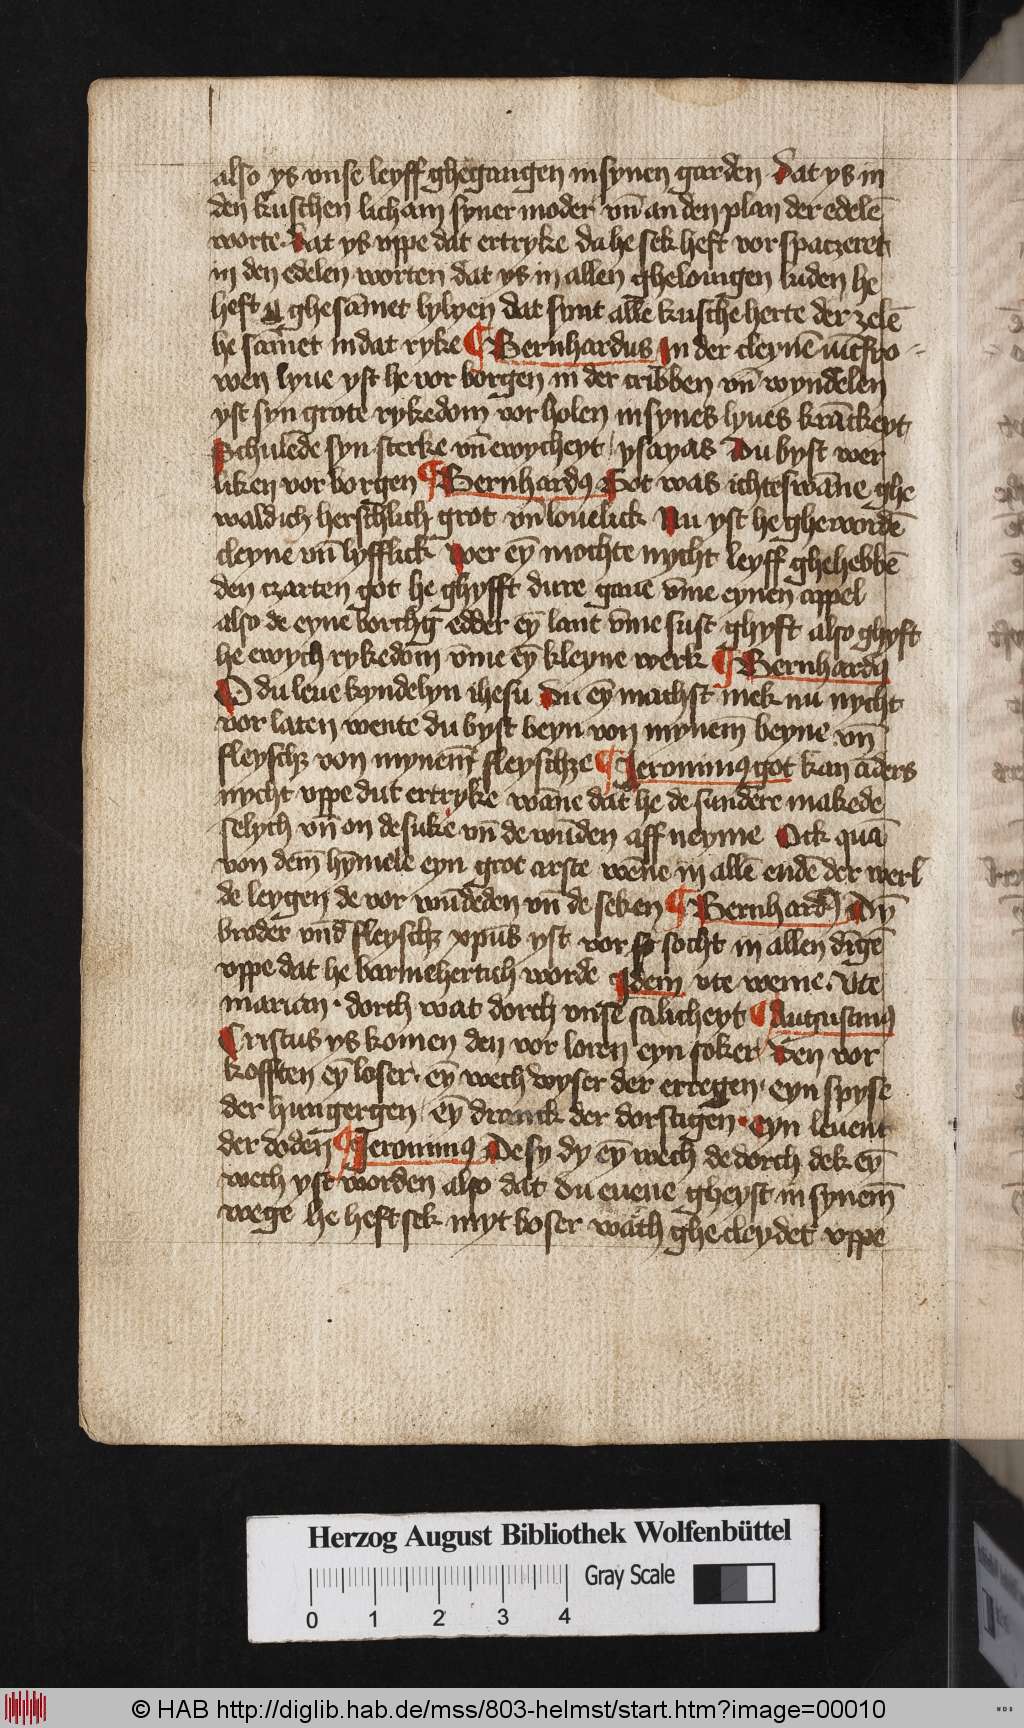 also ys vnse leyff ghegangen in synen garden Dat ys in
den kuschen licham syner moder vn̄ an den plan der edelē
worte Dat ys vppe dat ertryke da he sek heft vor spaczeret
in den edelen worten dat ys in allen ghelouigen luden he
heft ghesam̄et lylyen dat synt alle kusche herte der zelē
he sam̄et in dat ryke ¶ Bernhardus In der cleynē iūcfro
wen lyue yst he vor borgen in der cribben vn̄ wyndelen
yst syn grote rykedom vor holen in synes lyues krāckeyt
Schulēde syn sterke vn̄ ewycheyt ysayas Du byst wer
liken vor borgen ¶ Bernhardꝰ Got was ichteswāne ghe
waldich herschlich grot vn̄ louelick Nu yst he ghewordē
cleyne vn̄ lyfflick Wer eȳ mochte nycht leyff ghehebbē
den czarten got he ghyfft dure gaue vm̄e eynen appel
also de eyne borchg edder eȳ lant vm̄e sust ghyft also ghyft
he ewych rykedom vm̄e eȳ kleyne werk ¶ Bernhardꝰ
O du leue kyndelyn ihesu Du eȳ machst mek nu nycht
vor laten wente du byst beyn von mynem beyne vn̄
fleyschz von mynem fleyschze ¶ Jeronimꝰ got kan āders
nycht vppe dut ertryke wāne dat he de sundere makede
selych vn̄ on de suke vn̄ de wūden aff neyme Ock quā
von dem hȳmele eyn grot arste wēne in allē endē der werl
de leygen de vor wūdeden vn̄ de seken ¶ Bernhardꝰ Dȳ
broder vnd fleyschz xpūs yst vor socht in allen dīgē
vppe dat he barmehertich worde Idem vte weme vte
marian dorch wat dorch vnse salicheyt ¶ Augustinꝰ
Cristus ys komen den vor loren eyn soker Den vor
kofften eȳ loser eȳ wech wyser der erregen eyn spyse
der hungergen eȳ dranck der dorstigen eyn leuent
der doden ¶ Jeronimꝰ De sy dy eȳ wech de dorch dek eȳ
wech yst worden also dat du euene gheyst in synem
wege he heft sek myt boser wath ghecleydet vppe
Herzog August Bibliothek Wolfenbüttel
Gray Scale
0 1 2 3 4
© HAB http://diglib.hab.de/mss/803-helmst/start.htm?image=00010